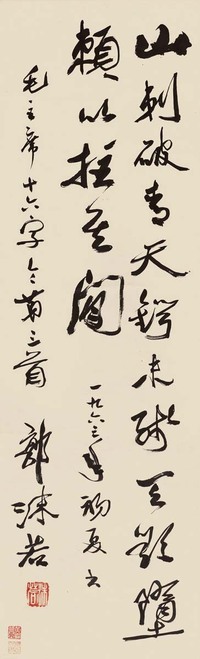 山刺破青天鍔未残天欲墮
賴以拄其間
毛主席十六字令第三首
一九六三年初夏书
郭沫若